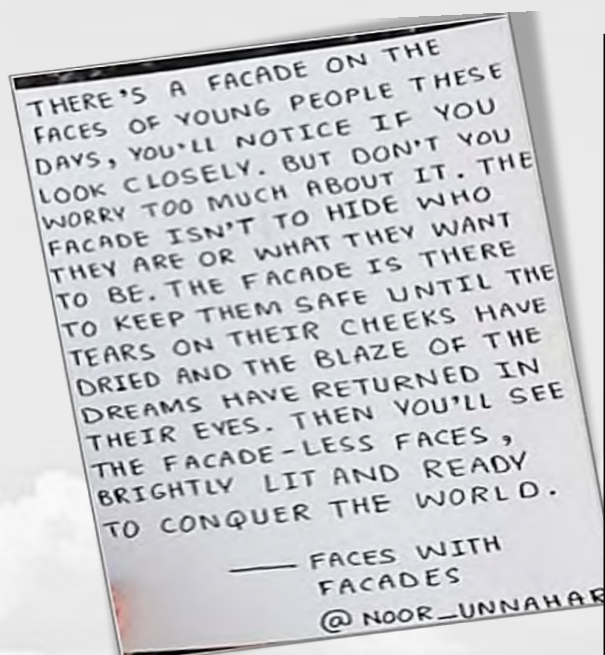 THERE'S A FACADE ON THE
FACES OF YOUNG PEOPLE THESE
DAYS, YOU'LL NOTICE IF YOU
LOOK CLOSELY. BUT DON'T YOU
WORRY TOO MUCH ABOUT IT. THE
FACADE ISN'T TO HIDE WHO
THEY ARE OR WHAT THEY WANT
TO BE. THE FACADE IS THERE
TO KEEP THEM SAFE UNTIL THE
TEARS ON THEIR CHEEKS HAVE
DRIED AND THE BLAZE OF THE
DREAMS HAVE RETURNED IN
THEIR EYES. THEN YOU'LL SEE
THE FACADE-LESS FACES,
BRIGHTLY LIT AND READY
TO CONQUER THE WORLD.
— FACES WITH
FACADES
@NOOR_UNNAHAR